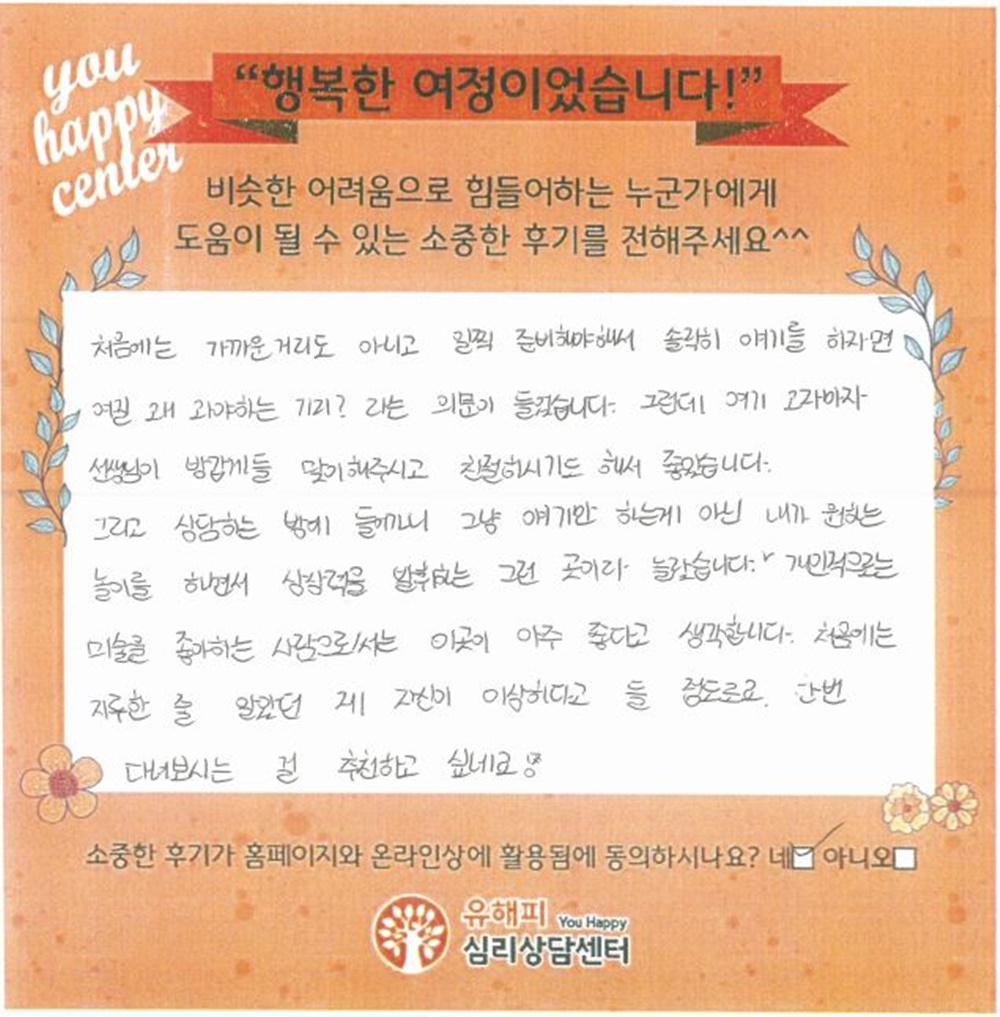 you
happy
center
“행복한 여정이었습니다!”
비슷한 어려움으로 힘들어하는 누군가에게
도움이 될 수 있는 소중한 후기를 전해주세요^^
처음에는 가까운거리도 아니고 일찍 준비해야해서 솔직히 얘기를 하자면
여길 왜 와야하는 거지? 라는 의문이 들었습니다. 그런데 여기 오자마자
선생님이 방갑게들 맞이해주시고 친절하시기도 해서 좋았습니다.
그리고 상담하는 방에 들어가니 그냥 얘기만 하는게 아닌 내가 원하는
놀이를 하면서 상상력을 발휘하는 그런 곳이라 놀랐습니다. 개인적으로는
미술을 좋아하는 사람으로서는 이곳이 아주 좋다고 생각합니다. 처음에는
지루한 줄 알았던 제 자신이 이상하다고 들 정도로요. 한번
다녀보시는 걸 추천하고 싶네요
소중한 후기가 홈페이지와 온라인상에 활용됨에 동의하시나요? 네 아니오
유해피 You Happy
심리상담센터